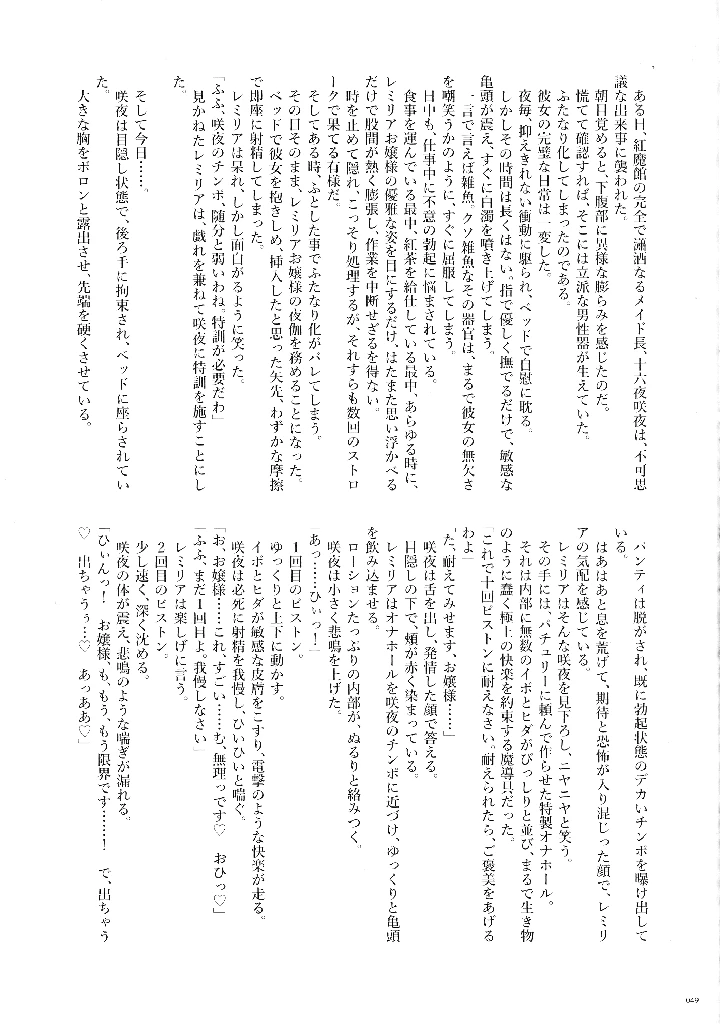 ある日、紅魔館の完全で瀟洒なメイド長、十六夜咲夜は、不可思
議な出来事に襲われた。
朝目覚めると、下腹部に異様な膨らみを感じたのだ。
慌てて確認すれば、そこには立派な男性器が生えていた。
ふたなり化してしまったのである。
彼女の完璧な日常は一変した。
夜毎、抑えきれない衝動に駆られ、ベッドで自慰に耽る。
しかしその時間は長くはない。指で優しく撫でるだけで、敏感な
亀頭が震え、すぐに白濁を噴き上げてしまう。
一言で言えば雑魚。クソ雑魚なその器官は、まるで彼女の無欠さ
を嘲笑うかのように、すぐに屈服してしまう。
日中も、仕事中に不意の勃起に悩まされている。
食事を運んでいる最中、紅茶を給仕している最中、あらゆる時に、
レミリアお嬢様の優雅な姿を目にするだけ、はたまた思い浮かべる
だけで股間が熱く膨張し、作業を中断せざるを得ない。
時を止めて隠れ、こっそり処理するが、それすらも数回のストロ
ークで果てる有様だ。
そしてある時、ふとした事でふたなり化がバレてしまう。
その日そのまま、レミリアお嬢様の夜伽を務めることになった。
ベッドで彼女を抱きしめ、挿入したと思った矢先、わずかな摩擦
で即座に射精してしまった。
レミリアは呆れ、しかし面白がるように笑った。
「ふふ、咲夜のチンポ、随分と弱いわね。特訓が必要だわ」
見かねたレミリアは、戯れを兼ねて咲夜に特訓を施すことにし
た。
そして今日……。
咲夜は目隠し状態で、後ろ手に拘束され、ベッドに座らされてい
た。
大きな胸をボロンと露出させ、先端を硬くさせている。
パンティは脱がされ、既に勃起状態のデカいチンポを曝け出して
いる。
はあはあと息を荒げて、期待と恐怖が入り混じった顔で、レミリ
アの気配を感じている。
レミリアはそんな咲夜を見下ろし、ニヤニヤと笑う。
その手には、パチュリーに頼んで作らせた特製オナホール。
それは内部に無数のイボとヒダがびっしりと並び、まるで生き物
のように蠢く極上の快楽を約束する魔導具だった。
「これで十回ピストンに耐えなさい。耐えられたら、ご褒美をあげる
わよ」
「た、耐えてみせます、お嬢様……」
咲夜は舌を出し、発情した顔で答える。
目隠しの下で、頬が赤く染まっている。
レミリアはオナホールを咲夜のチンポに近づけ、ゆっくりと亀頭
を飲み込ませる。
ローションたっぷりの内部が、ぬるりと絡みつく。
咲夜は小さく悲鳴を上げた。
「あっ……ひぃっ！」
１回目のピストン。
ゆっくりと上下に動かす。
イボとヒダが敏感な皮膚をこすり、電撃のような快楽が走る。
咲夜は必死に射精を我慢し、ひいひいと喘ぐ。
「お、お嬢様……これ、すごい……も、無理っです♡　おひっ♡」
「ふふ、まだ１回目よ。我慢しなさい」
レミリアは楽しげに言う。
２回目のピストン。
少し速く、深く沈める。
咲夜の体が震え、悲鳴のような喘ぎが漏れる。
「ひぃんっ！　お嬢様、も、もう、もう限界です……！　で、出ちゃう
♡　出ちゃうぅ…♡　あっああ♡」
049